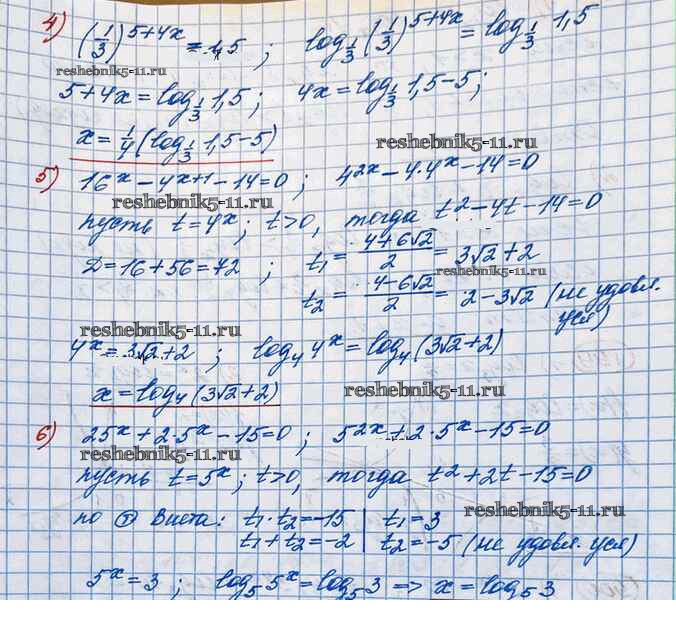 4) (1/3)^(5+4x) = 1,5 ; log_(1/3) (1/3)^(5+4x) = log_(1/3) 1,5
reshebnik5-11.ru
5+4x = log_(1/3) 1,5 ; 4x = log_(1/3) 1,5 - 5 ;
x = 1/4 (log_(1/3) 1,5 - 5)
reshebnik5-11.ru
5) 16^x - 4^(x+1) - 14 = 0 ; 4^(2x) - 4·4^x - 14 = 0
reshebnik5-11.ru
пусть t = 4^x ; t>0, тогда t^2 - 4t - 14 = 0
D = 16 + 56 = 72 ; t_1 = (4+6√2)/2 = 3√2 + 2
reshebnik5-11.ru
t_2 = (4-6√2)/2 = 2 - 3√2 (не удовл. усл)
reshebnik5-11.ru
4^x = 3√2 + 2 ; log_4 4^x = log_4 (3√2 + 2)
x = log_4 (3√2 + 2)
reshebnik5-11.ru
6) 25^x + 2·5^x - 15 = 0 ; 5^(2x) + 2·5^x - 15 = 0
пусть t = 5^x ; t>0, тогда t^2 + 2t - 15 = 0
reshebnik5-11.ru
по Т Виета: t_1·t_2 = -15 | t_1 = 3
t_1 + t_2 = -2 | t_2 = -5 (не удовл. усл)
5^x = 3 ; log_5 5^x = log_5 3 => x = log_5 3